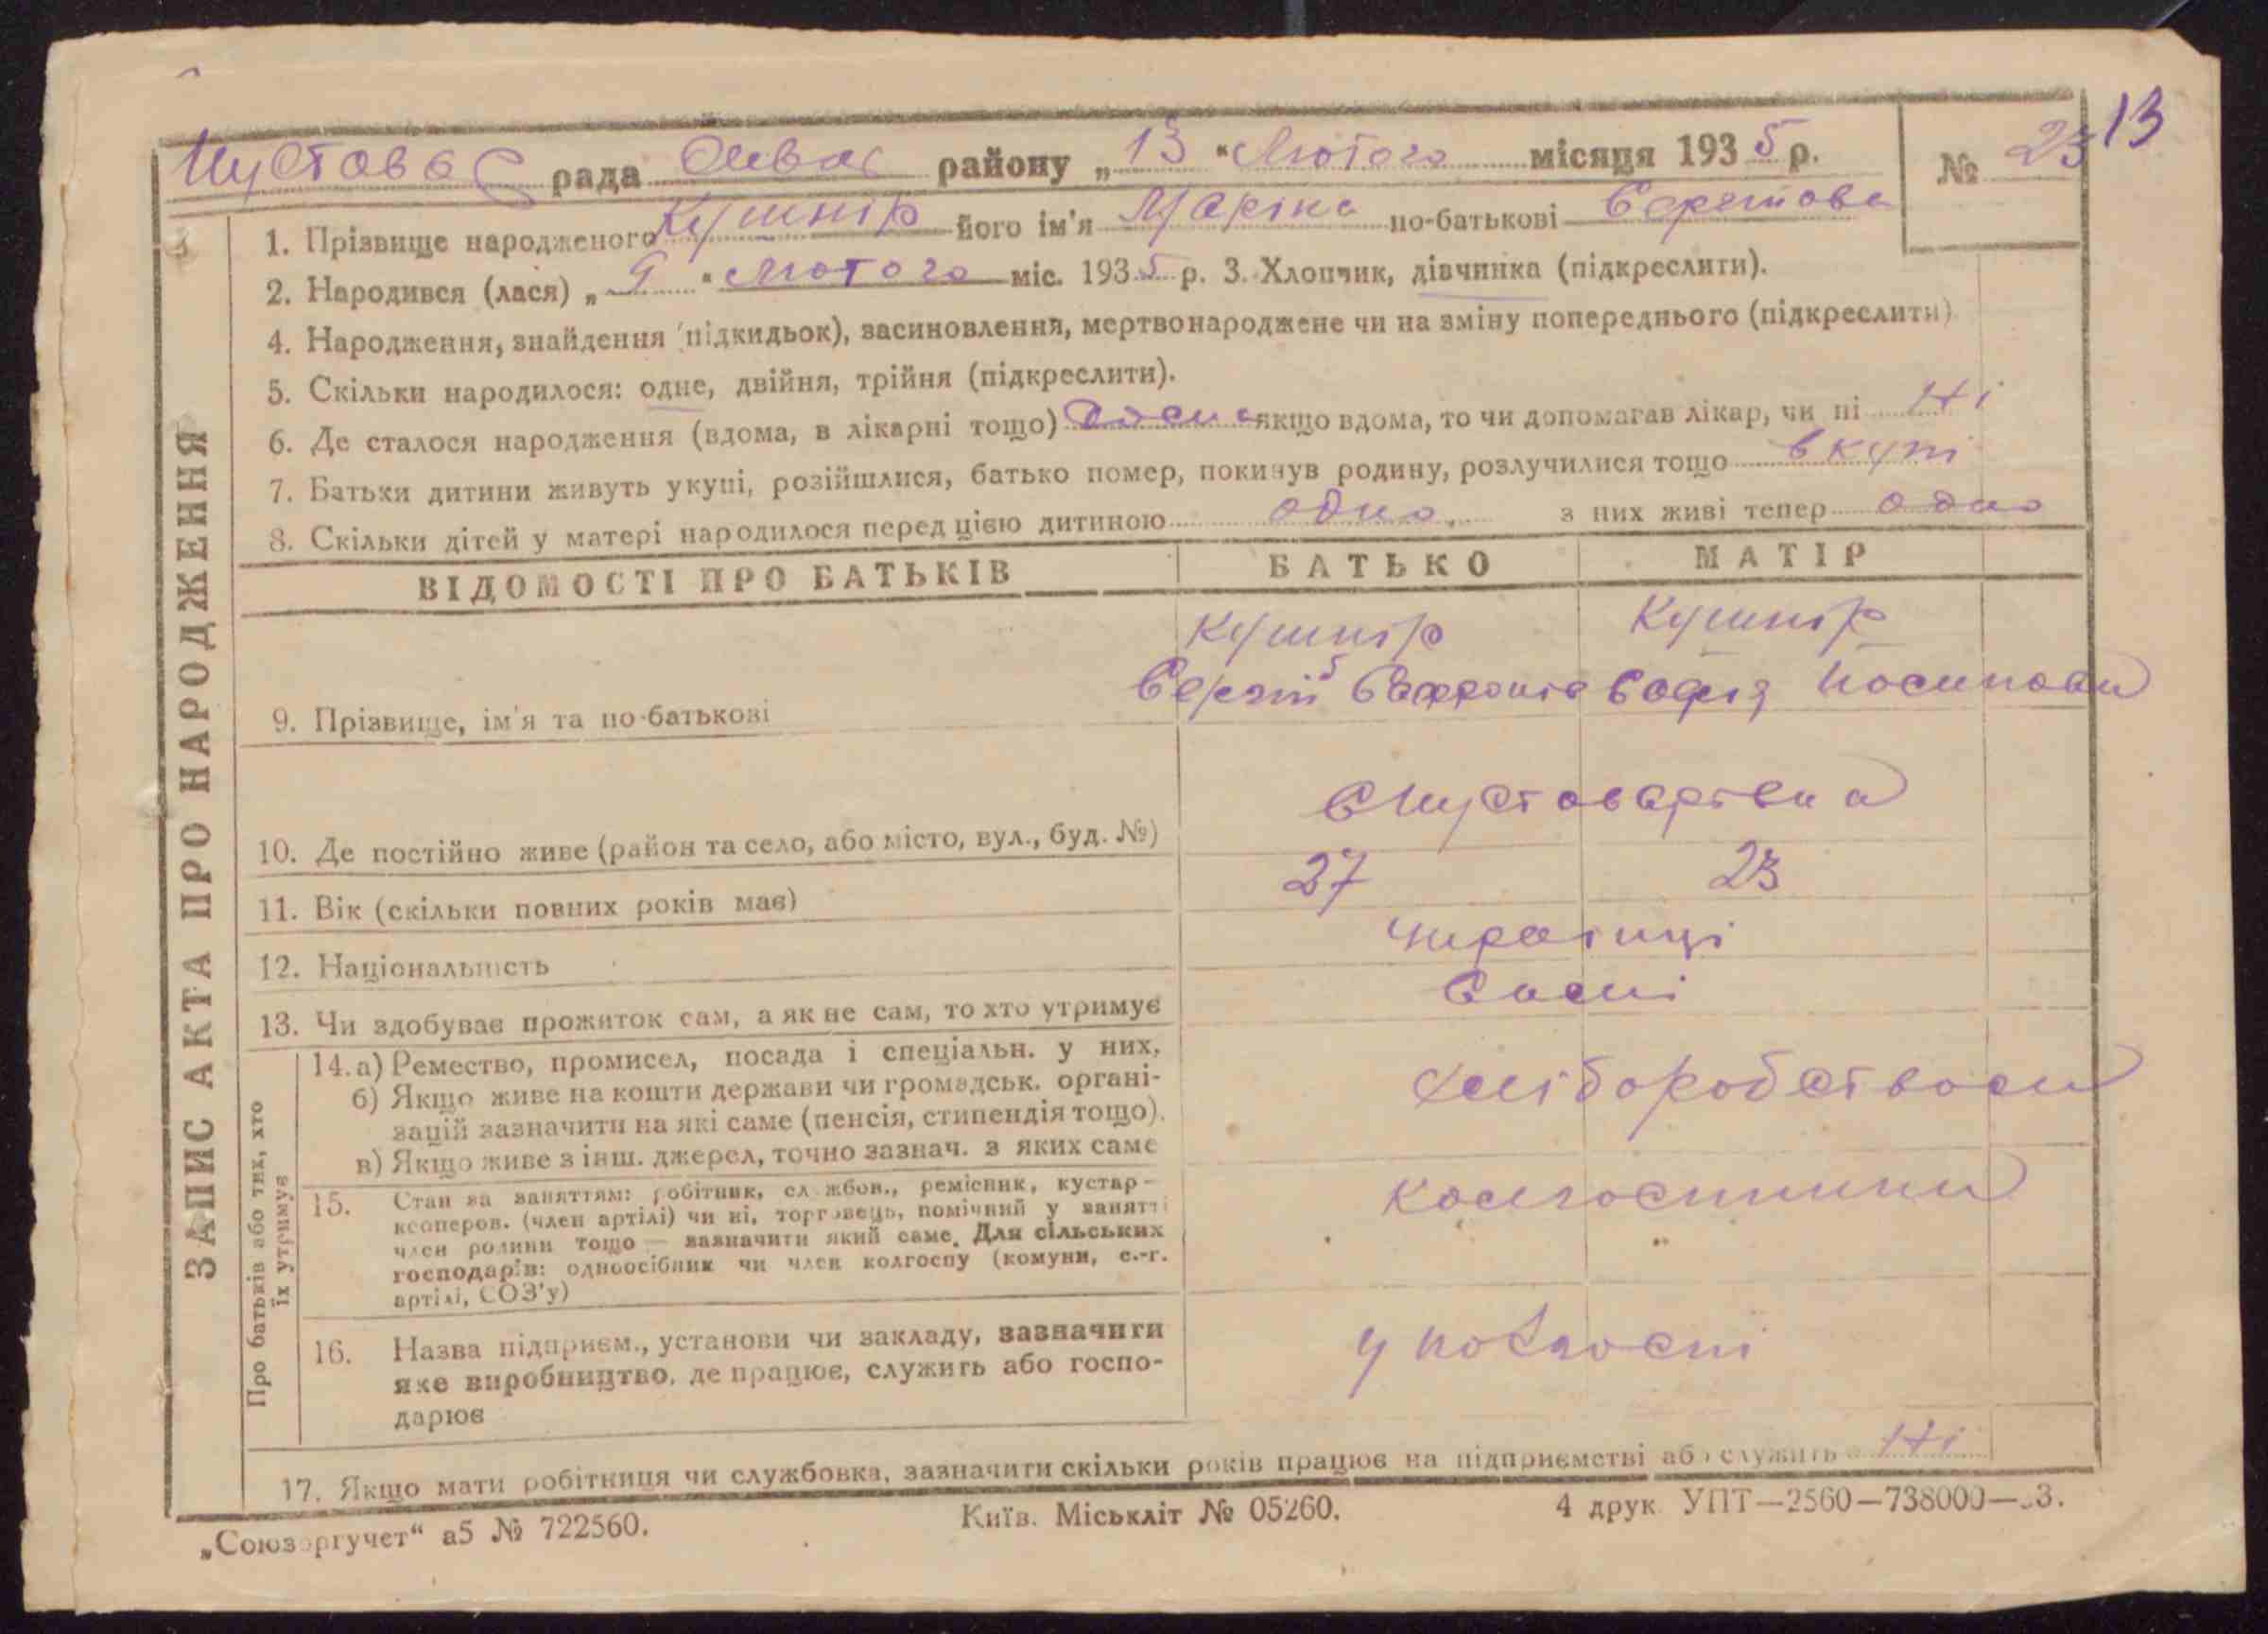 13
Шустова с рада Лива районy „ 13 “ Лютого місяця 193 5 р. № 23
1. Прізвище народженого Кушнір його ім'я Маріка по-батькові Сергійова
2. Народився (лася) „ 9 “ Лютого міс. 193 5 р. 3. Хлопчик, дівчинка (підкреслити).
4. Народження, знайдення (підкидьок), засиновлення, мертвонароджене чи на зміну попереднього (підкреслити)
5. Скільки народилося: одне, двійня, трійня (підкреслити).
6. Де сталося народження (вдома, в лікарні тощо) Дома якщо вдома, то чи допомагав лікар, чи ні Ні
7. Батьки дитини живуть укупі, розійшлися, батько помер, покинув родину, розлучилися тощо вкупі
8. Скільки дітей у матері народилося перед цією дитиною одно з них живі тепер одно
ВІДОМОСТІ ПРО БАТЬКІВ БАТЬКО МАТІР
Кушнір Кушнір
9. Прізвище, ім'я та по-батькові Сергій Софія Йосипови
10. Де постійно живе (район та село, або місто, вул., буд. №) с Шустоварівка
11. Вік (скільки повних років має) 27 23
12. Національність Українці
13. Чи здобуває прожиток сам, а як не сам, то хто утримує Самі
14. а) Ремество, промисел, посада і спеціальн. у них, хліборобством
б) Якщо живе на кошти держави чи громадськ. органі-
зацій зазначити на які саме (пенсія, стипендія тощо).
в) Якщо живе з інш. джерел, точно зазнач. з яких саме
15. Стан за заняттям: робітник, службов., ремісник, кустар- колгоспники
кооперов. (член артілі) чи ні, торговець, помічний у занятті
член родини тощо — зазначити який саме. Для сільських
господарів: одноосібник чи член колгоспу (комуни, с.-г.
артілі, СОЗ'у)
16. Назва підприєм., установи чи закладу, зазначити у колгоспі
яке виробництво, де працює, служить або госпо-
дарює
17. Якщо мати робітниця чи службовка, зазначити скільки років працює на підприємстві або служить Ні
„Союзоргучет“ а5 № 722560. Київ. Міськліт № 05260. 4 друк. УПТ—2560—738000—
ЗАПИС АКТА ПРО НАРОДЖЕННЯ
Про батьків або тих, хто
їх утримує